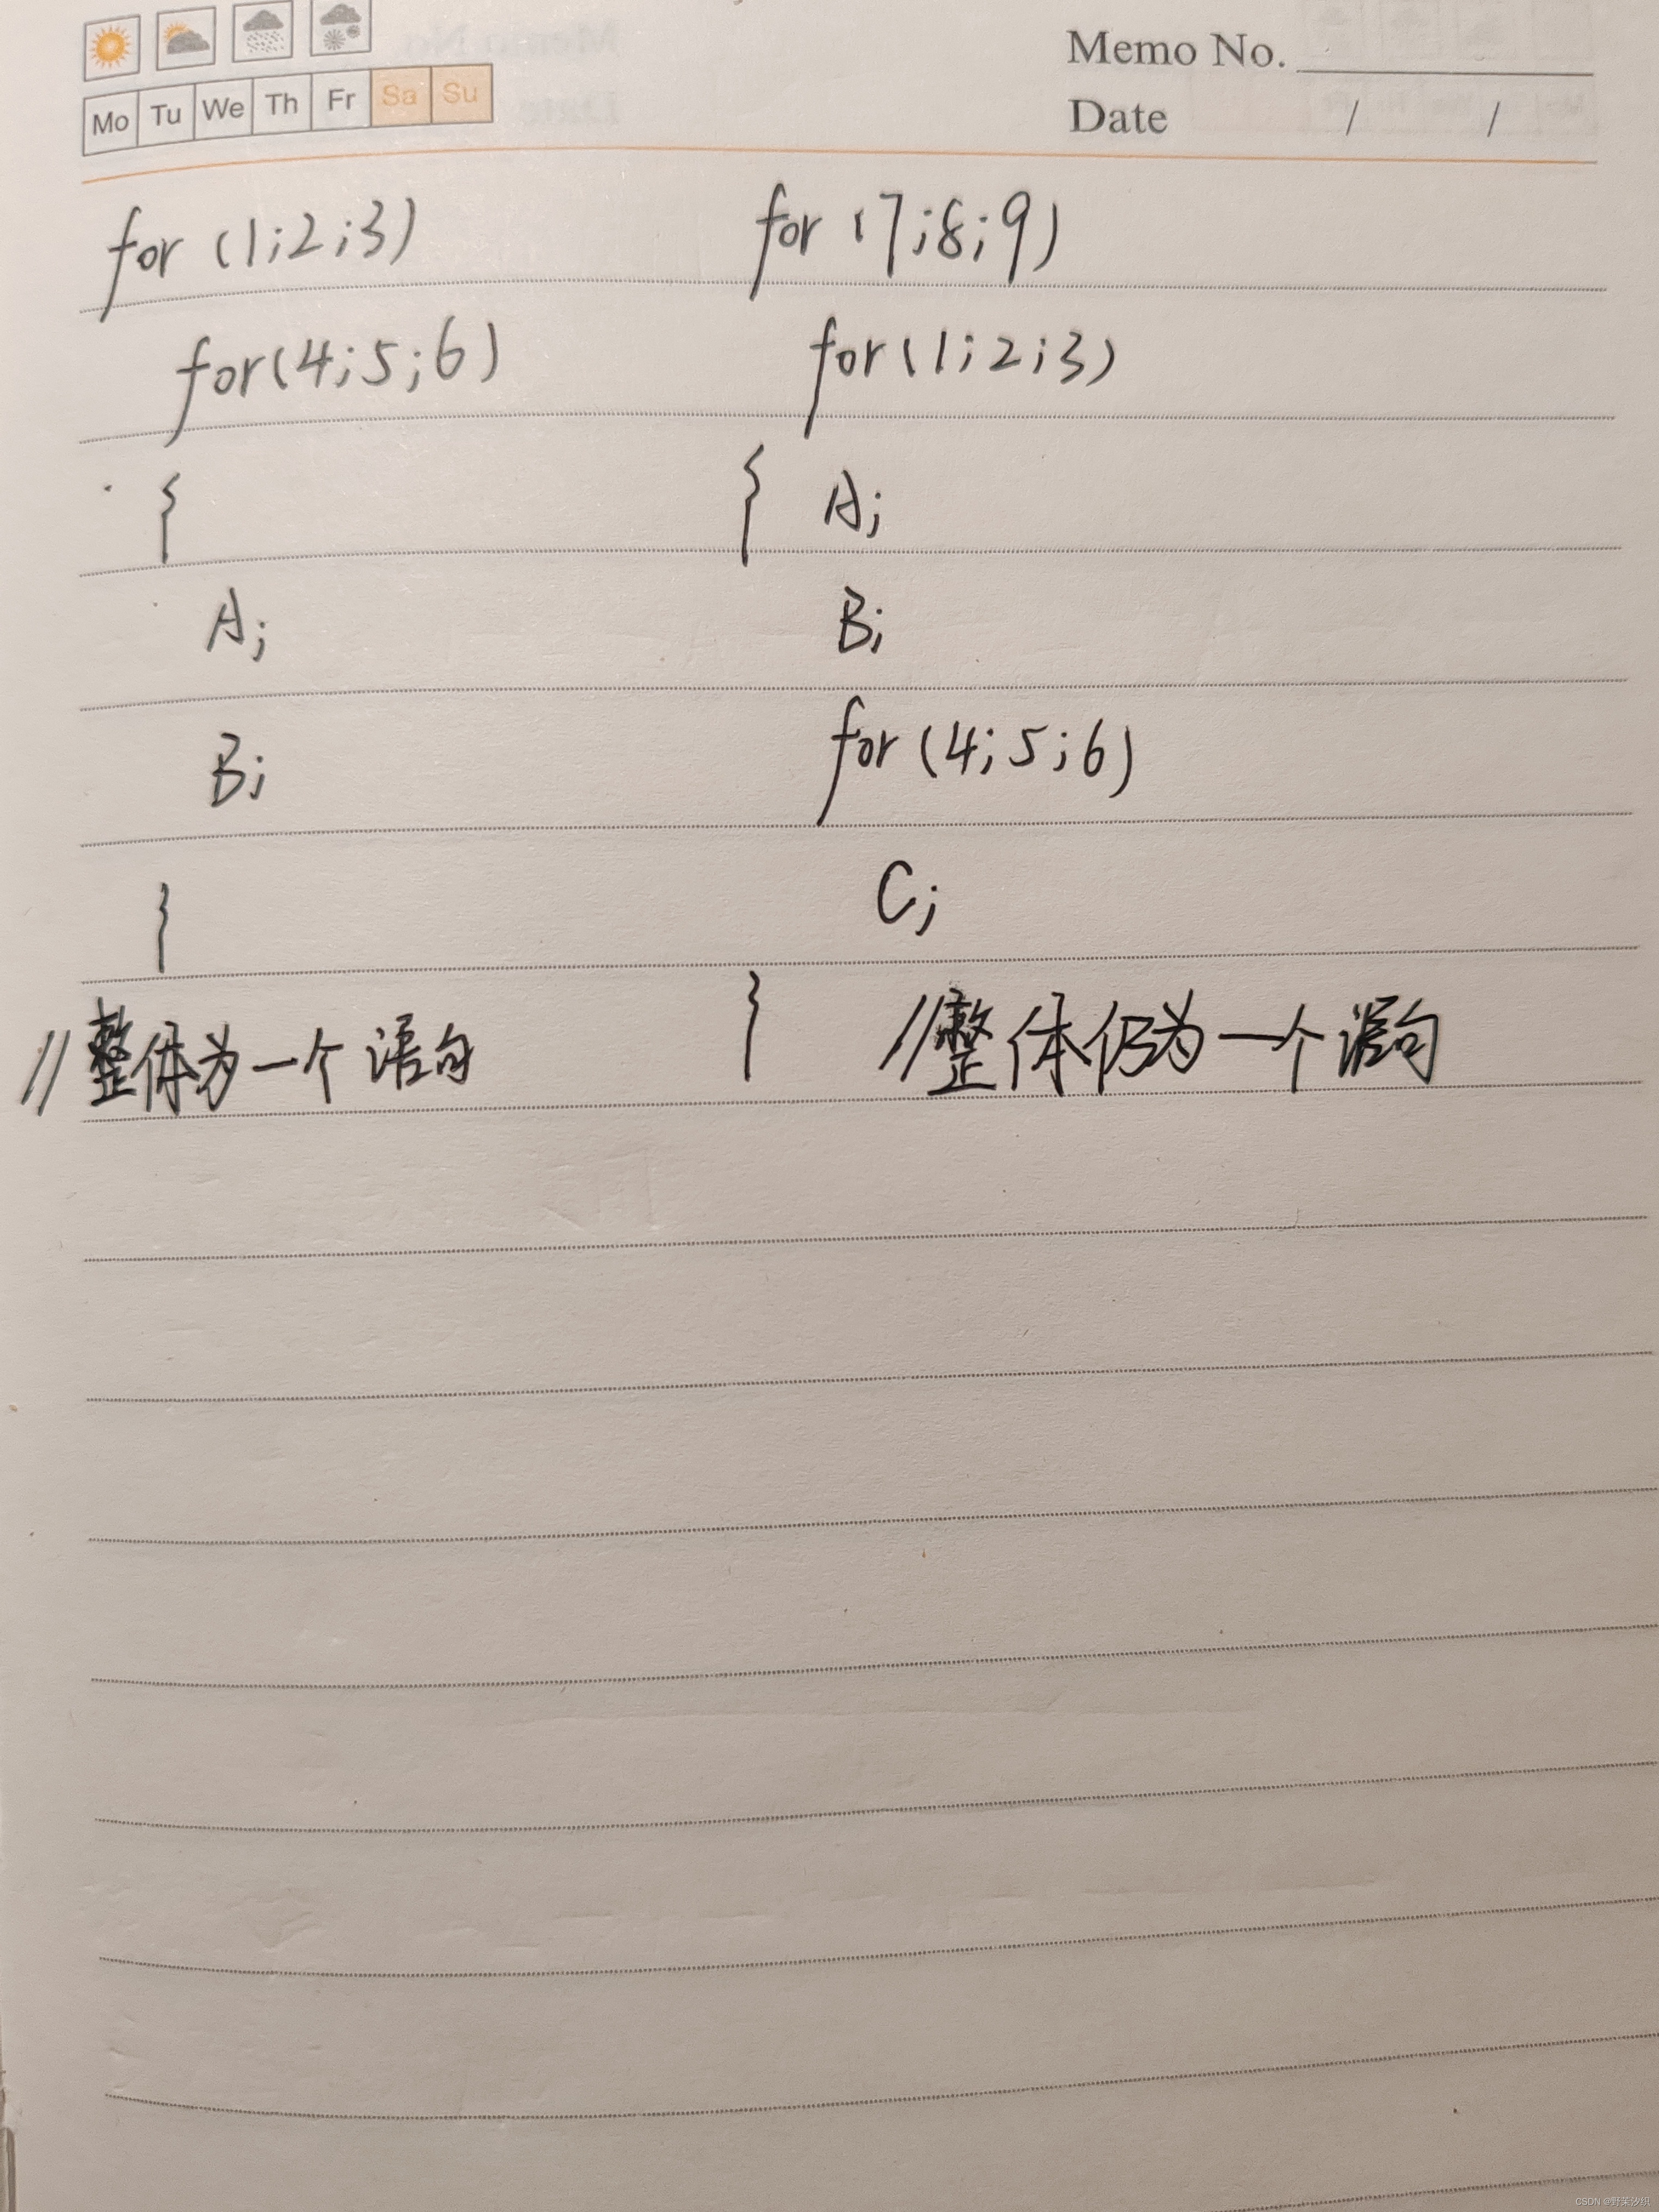 Mo Tu We Th Fr Sa Su
Memo No.
Date / /
for (1;2;3)
for(4;5;6)
{
A;
B;
}
//整体为一个语句
for (7;8;9)
for(1;2;3)
{ A;
B;
for(4;5;6)
C;
} //整体仍为一个语句
CSDN @野茶汐织